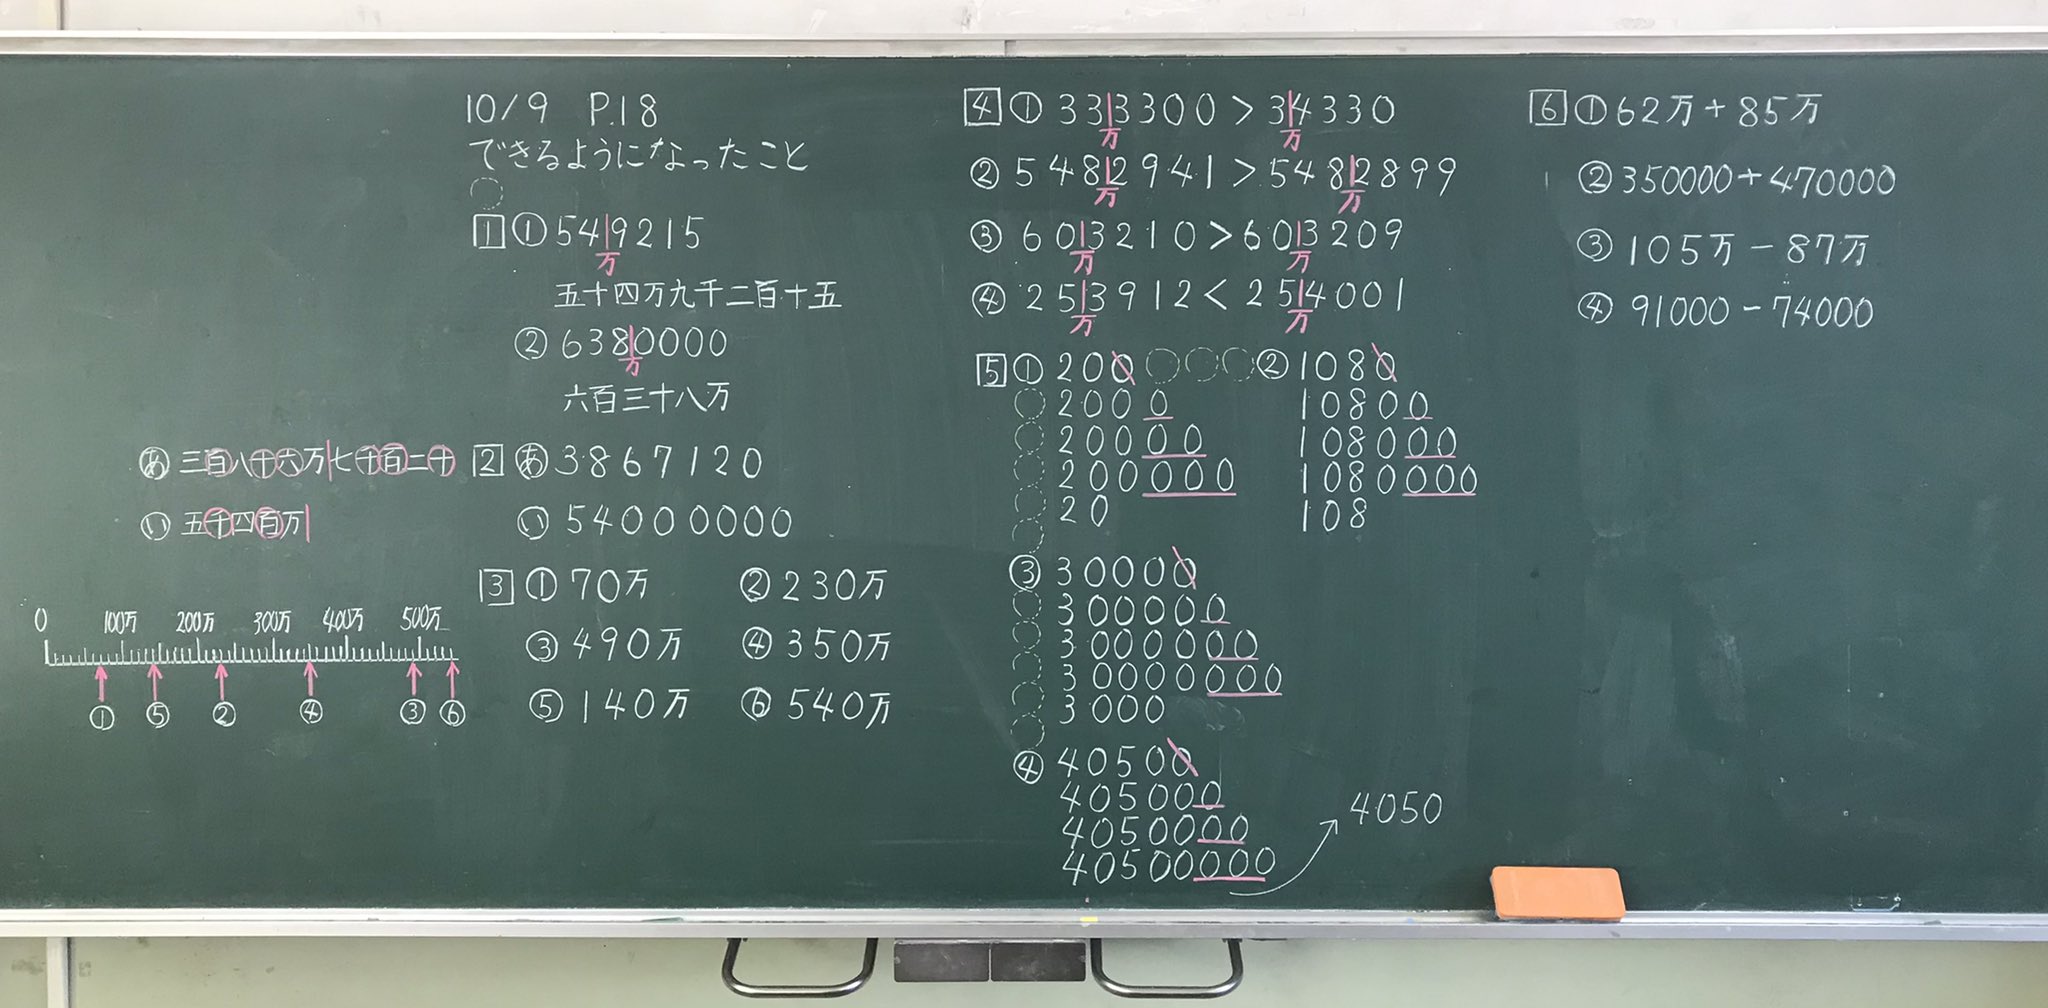 10/9 P.18
できるようになったこと
1 ① 549215
万
五十四万九千二百十五
② 6380000
万
六百三十八万
あ 三百八十六万七千百二十
い 五千四百万
2 あ 3867120
い 54000000
3 ① 70万 ② 230万
③ 490万 ④ 350万
⑤ 140万 ⑥ 540万
0 100万 200万 300万 400万 500万
① ⑤ ② ④ ③ ⑥
4 ① 333300 > 34330
万 万
② 5482941 > 5482899
万 万
③ 603210 > 603209
万 万
④ 253912 < 254001
万 万
5 ① 200
2000
20000
200000
20
② 1080
10800
108000
1080000
108
③ 30000
300000
3000000
30000000
3000
④ 40500
405000
4050000
40500000
4050
6 ① 62万+85万
② 350000+470000
③ 105万-87万
④ 91000-74000